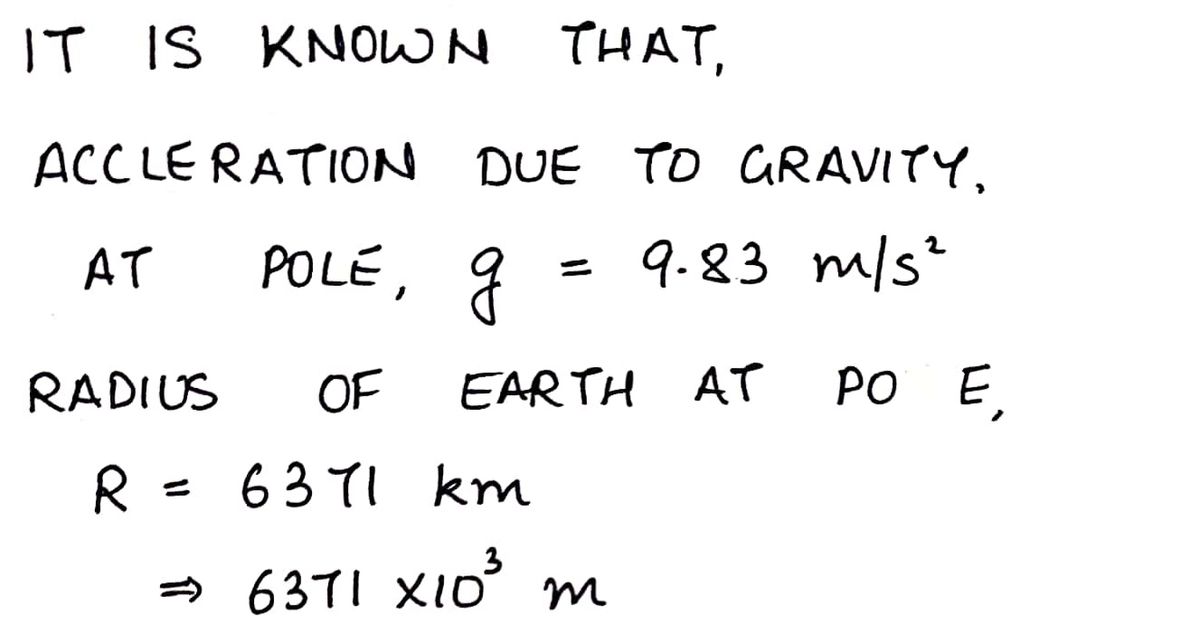 IT IS KNOWN THAT,
ACCLERATION DUE TO GRAVITY,
AT POLE, g = 9.83 m/s²
RADIUS OF EARTH AT PO E,
R = 6371 km
⇒ 6371 ×10³ m